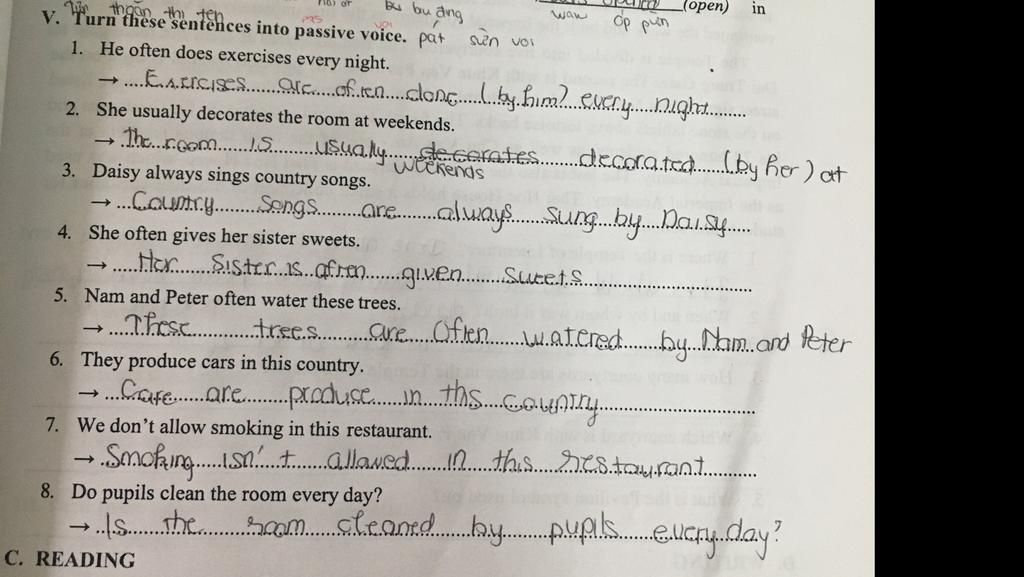 (open) in
thoản thi ten bu buđing waw op pừn
V. Turn these sentences into passive voice. pát sừn voi
1. He often does exercises every night.
→ Exercises are often done (by him) every night
2. She usually decorates the room at weekends.
→ The room is usually decorates decorated (by her) at
weekends
3. Daisy always sings country songs.
→ Country songs are always sung by Daisy
4. She often gives her sister sweets.
→ Her sister is often given sweets
5. Nam and Peter often water these trees.
→ These trees are often watered by Nam and Peter
6. They produce cars in this country.
→ Care are produce in ths country
7. We don't allow smoking in this restaurant.
→ Smoking isn't allowed in this restaurant
8. Do pupils clean the room every day?
→ Is the room cleaned by pupils every day?
C. READING